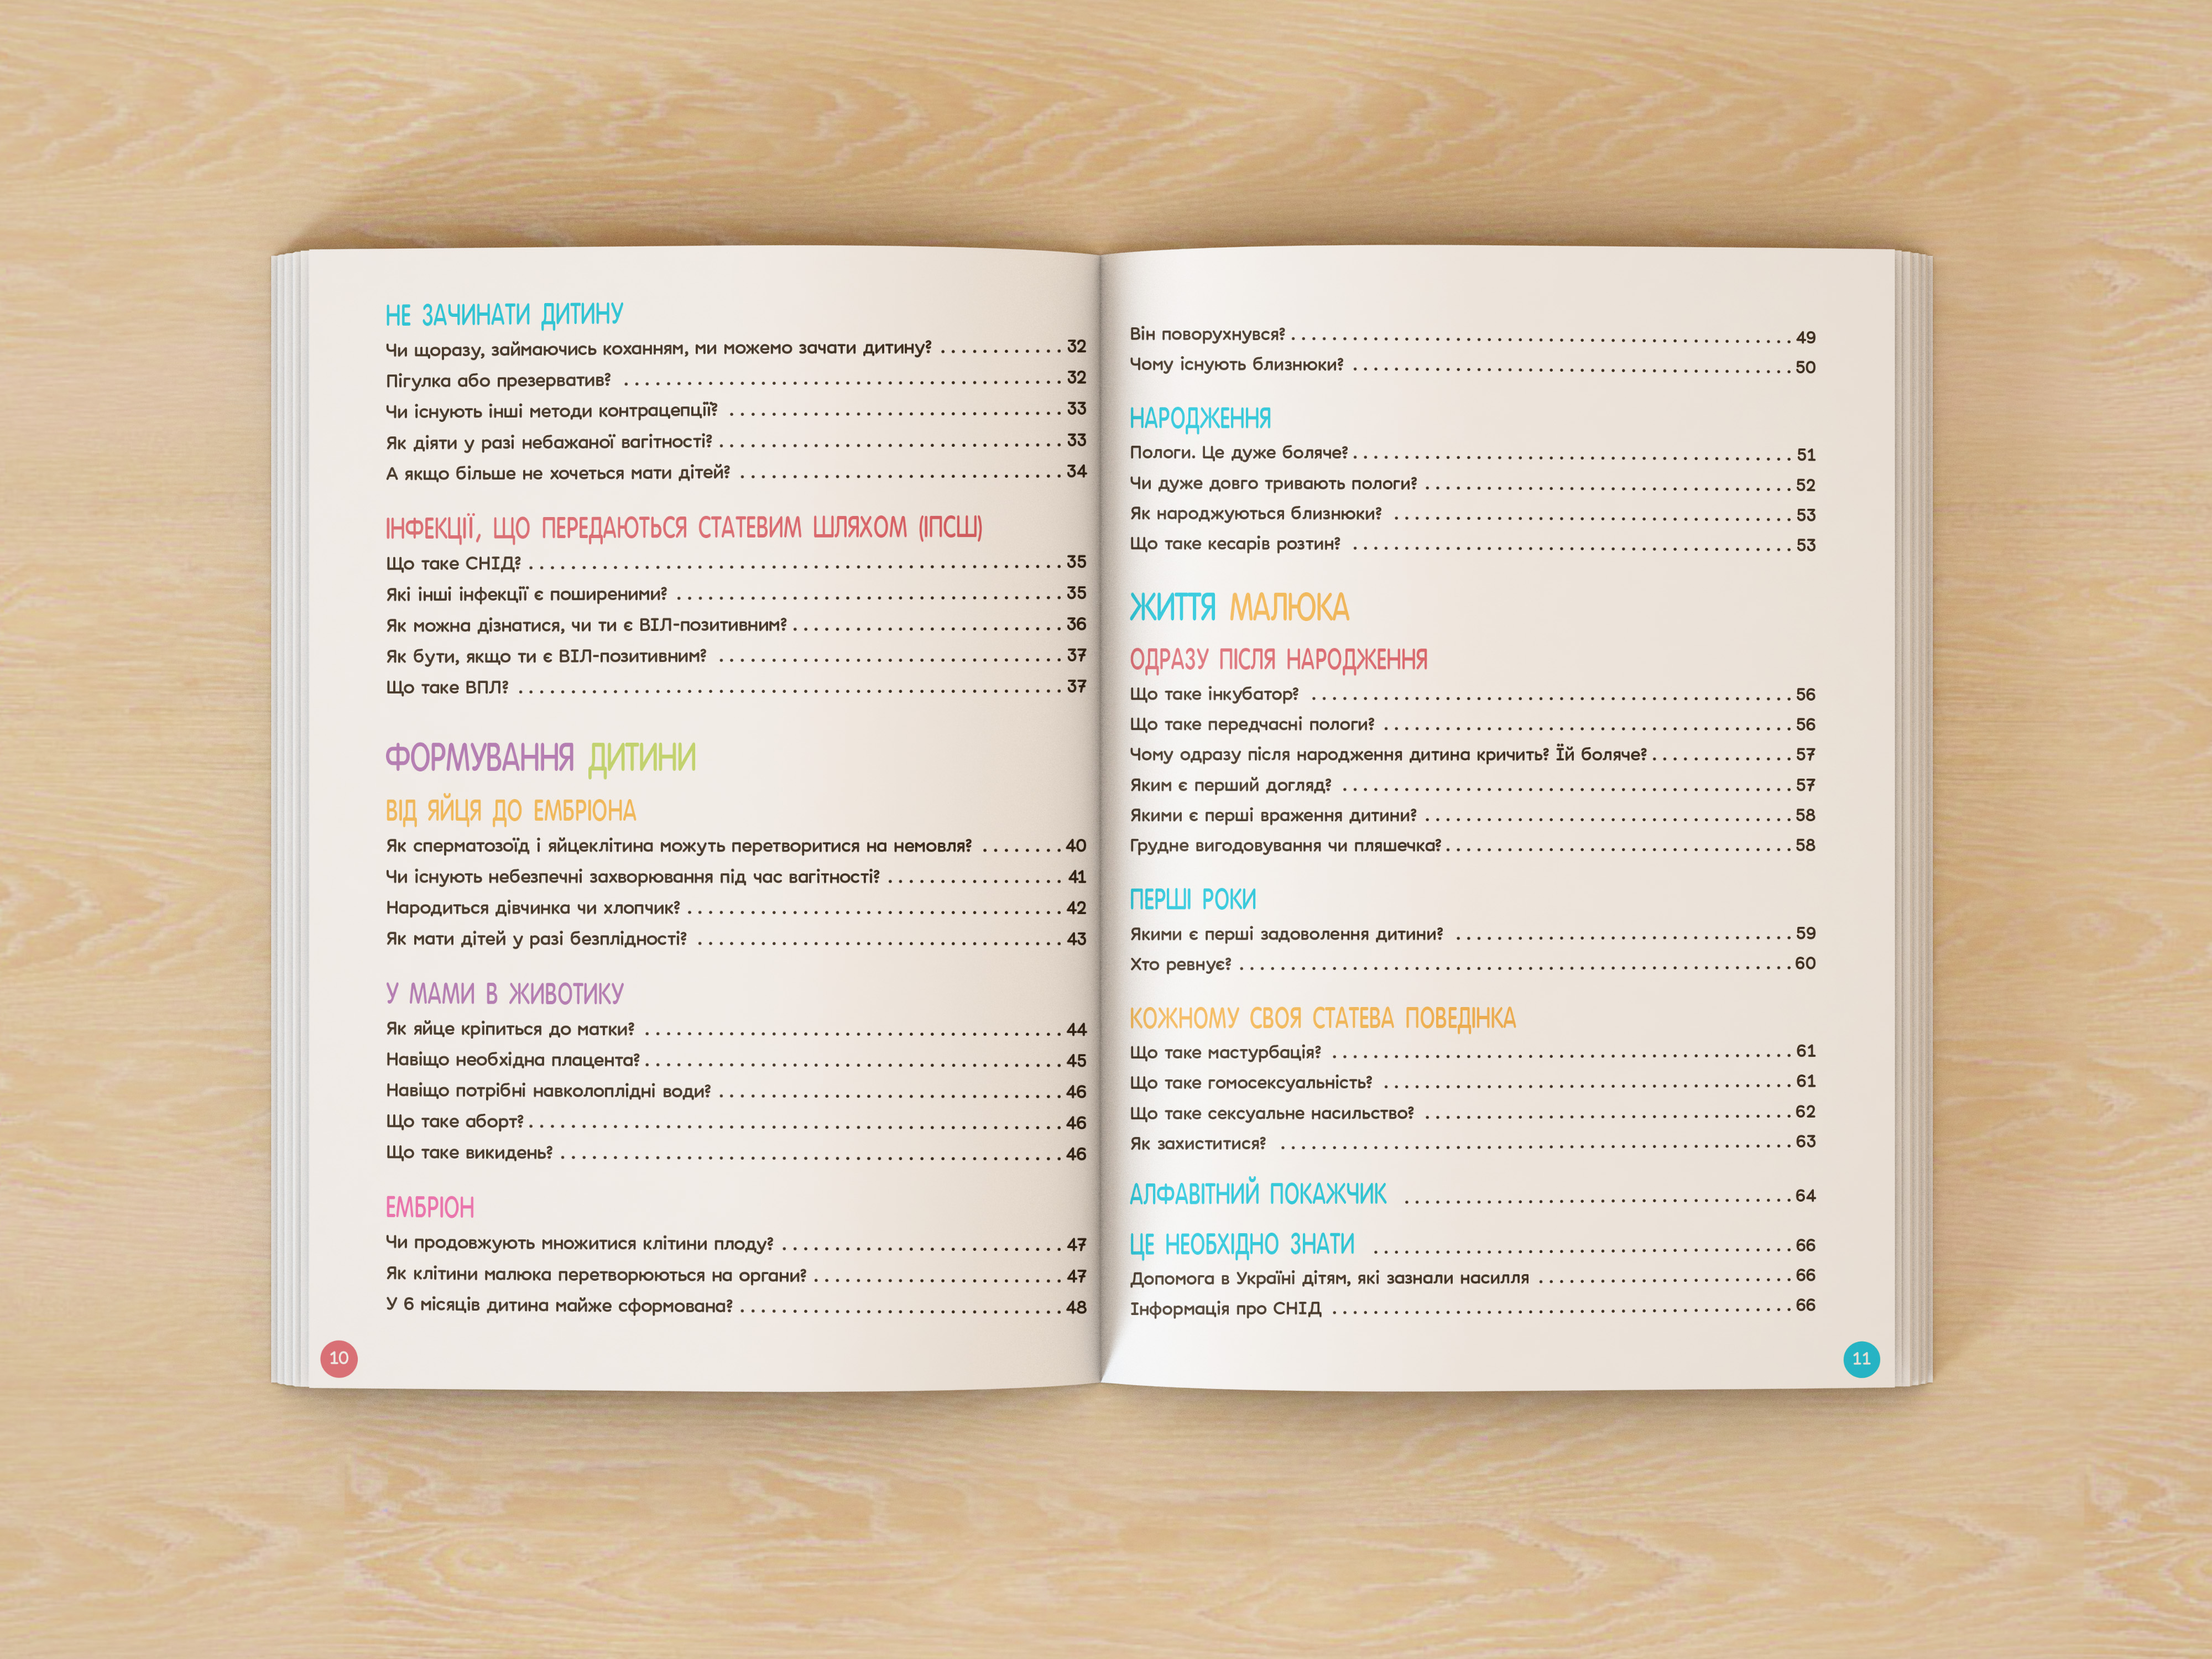 НЕ ЗАЧИНАТИ ДИТИНУ
Чи щоразу, займаючись коханням, ми можемо зачати дитину? ............ 32
Пігулка або презерватив? .......................................... 32
Чи існують інші методи контрацепції? ................................ 33
Як діяти у разі небажаної вагітності? ................................. 33
А якщо більше не хочеться мати дітей? ............................... 34
ІНФЕКЦІЇ, ЩО ПЕРЕДАЮТЬСЯ СТАТЕВИМ ШЛЯХОМ (ІПСШ)
Що таке СНІД? ................................................... 35
Які інші інфекції є поширеними? ..................................... 35
Як можна дізнатися, чи ти є ВІЛ-позитивним? .......................... 36
Як бути, якщо ти є ВІЛ-позитивним? ................................. 37
Що таке ВПЛ? .................................................... 37
ФОРМУВАННЯ ДИТИНИ
ВІД ЯЙЦЯ ДО ЕМБРІОНА
Як сперматозоїд і яйцеклітина можуть перетворитися на немовля? ........ 40
Чи існують небезпечні захворювання під час вагітності? ................. 41
Народиться дівчинка чи хлопчик? .................................... 42
Як мати дітей у разі безплідності? ................................... 43
У МАМИ В ЖИВОТИКУ
Як яйце кріпиться до матки? ........................................ 44
Навіщо необхідна плацента? ........................................ 45
Навіщо потрібні навколоплідні води? ................................. 46
Що таке аборт? ................................................... 46
Що таке викидень? ................................................ 46
ЕМБРІОН
Чи продовжують множитися клітини плоду? ........................... 47
Як клітини малюка перетворюються на органи? ........................ 47
У 6 місяців дитина майже сформована? ............................... 48
10
Він поворухнувся? ................................................ 49
Чому існують близнюки? .......................................... 50
НАРОДЖЕННЯ
Пологи. Це дуже боляче? .......................................... 51
Чи дуже довго тривають пологи? ................................... 52
Як народжуються близнюки? ...................................... 53
Що таке кесарів розтин? .......................................... 53
ЖИТТЯ МАЛЮКА
ОДРАЗУ ПІСЛЯ НАРОДЖЕННЯ
Що таке інкубатор? .............................................. 56
Що таке передчасні пологи? ....................................... 56
Чому одразу після народження дитина кричить? Їй боляче? .............. 57
Яким є перший догляд? ........................................... 57
Якими є перші враження дитини? ................................... 58
Грудне вигодовування чи пляшечка? ................................. 58
ПЕРШІ РОКИ
Якими є перші задоволення дитини? ................................ 59
Хто ревнує? ..................................................... 60
КОЖНОМУ СВОЯ СТАТЕВА ПОВЕДІНКА
Що таке мастурбація? ............................................ 61
Що таке гомосексуальність? ....................................... 61
Що таке сексуальне насильство? ................................... 62
Як захиститися? ................................................. 63
АЛФАВІТНИЙ ПОКАЖЧИК ..................................... 64
ЦЕ НЕОБХІДНО ЗНАТИ ........................................ 66
Допомога в Україні дітям, які зазнали насилля ........................ 66
Інформація про СНІД ............................................ 66
11